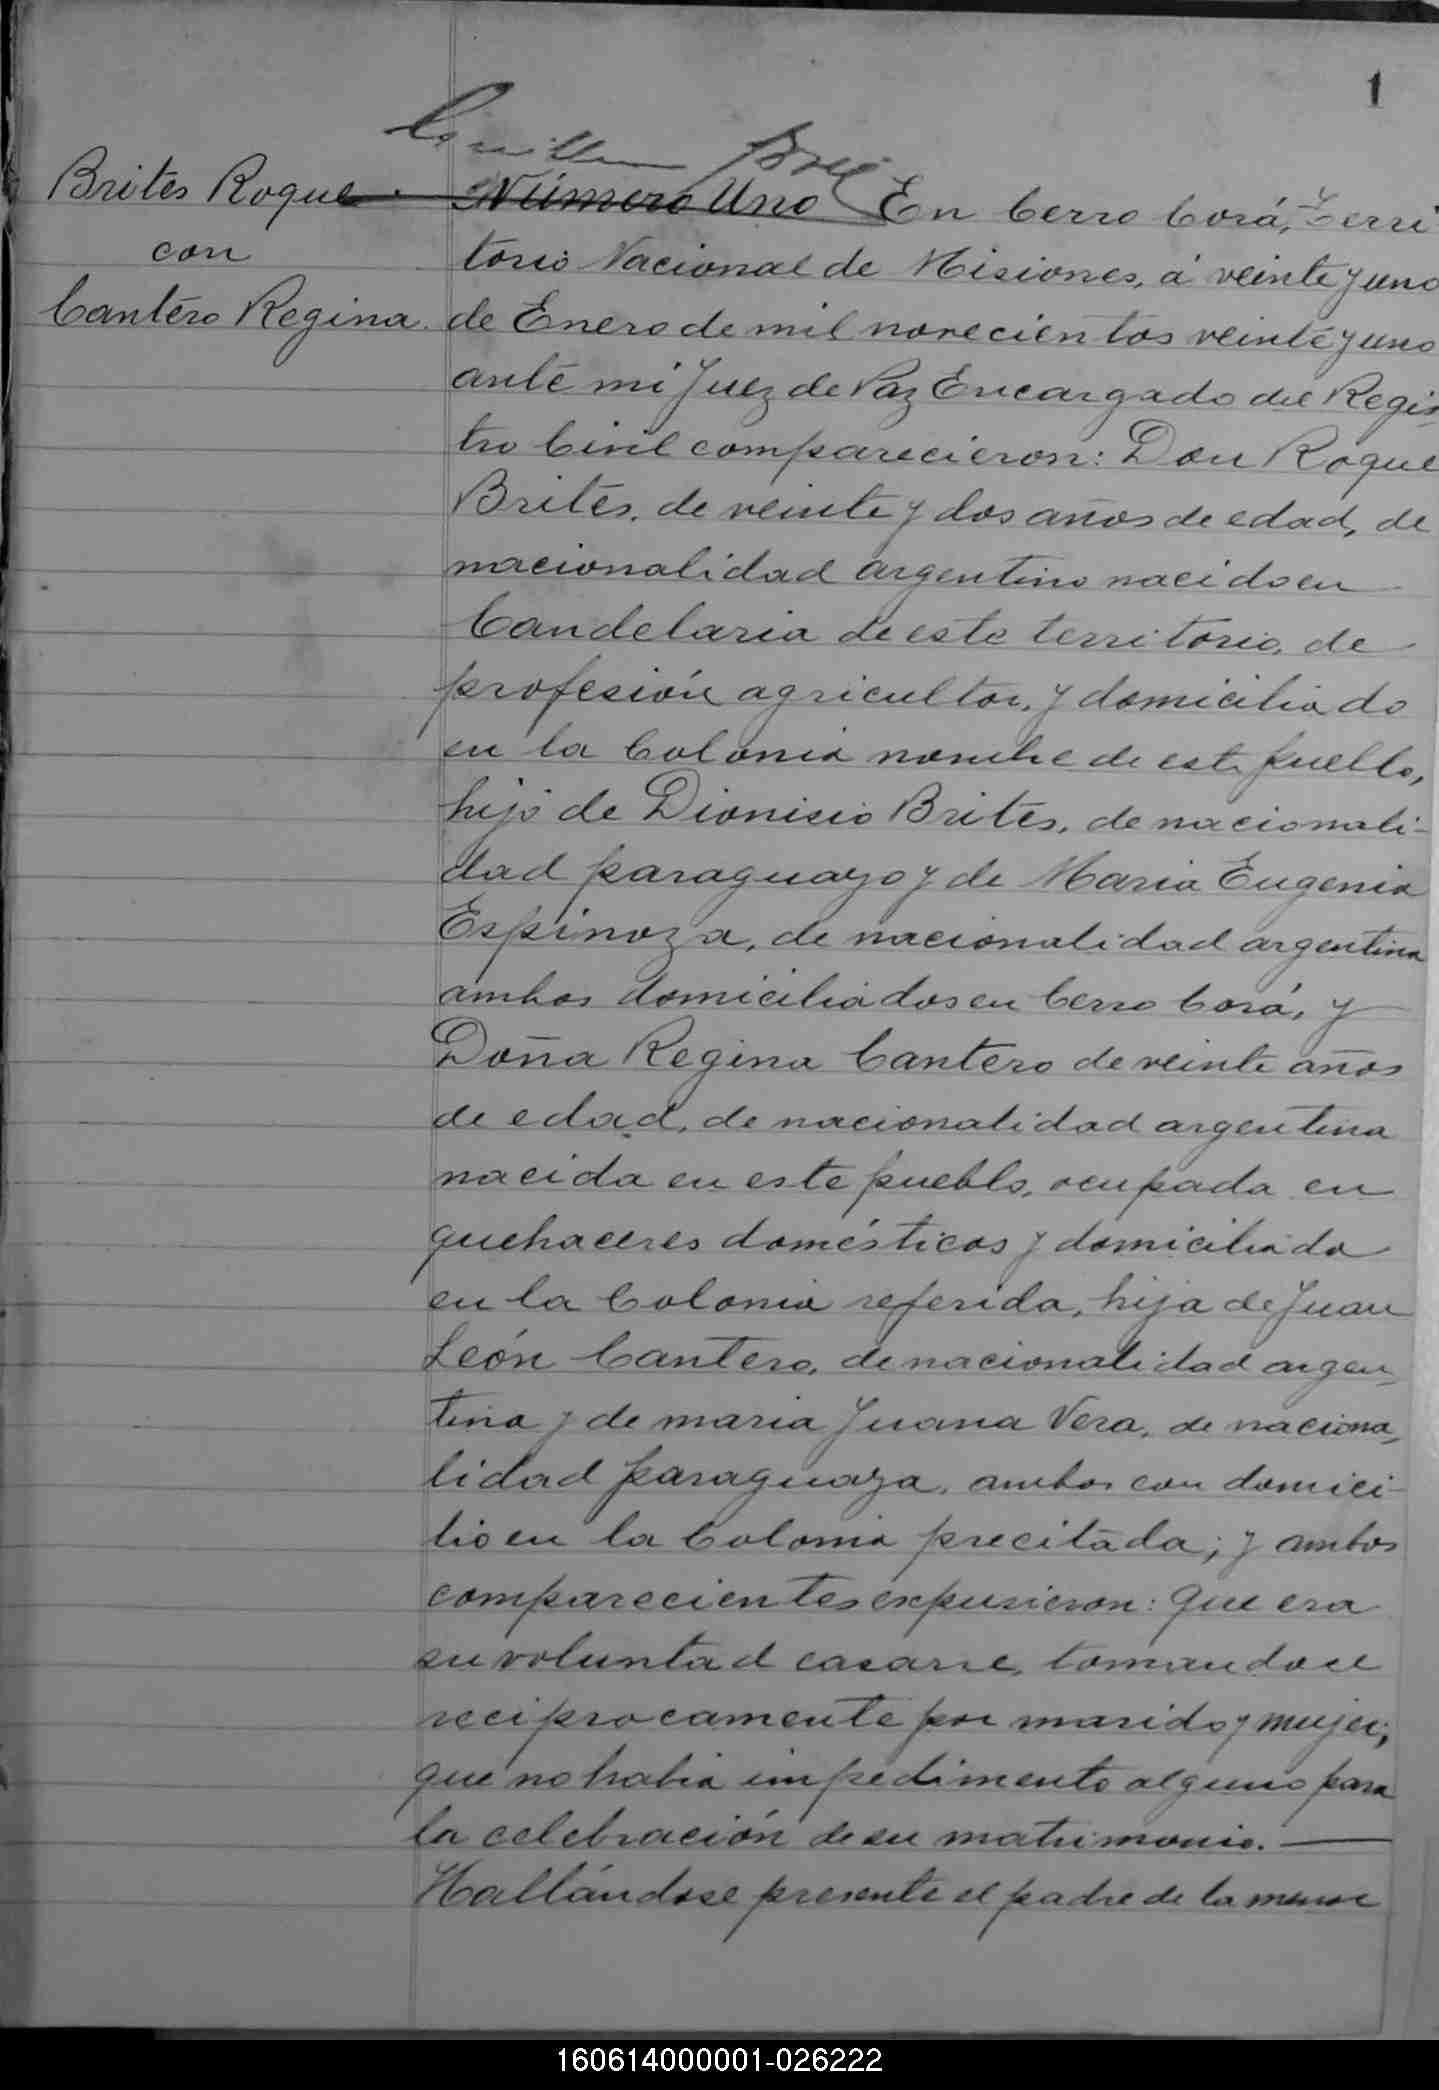 1
Brites Roque
con
Cantero Regina.
Número Uno En Cerro Corá, Terri
torio Nacional de Misiones, á veinte y uno
de Enero de mil novecientos veinte y uno
ante mi Juez de Paz Encargado del Regis
tro Civil comparecieron: Don Roque
Brites, de veinte y dos años de edad, de
nacionalidad argentino nacido en
Candelaria de este territorio, de
profesión agricultor, y domiciliado
en la Colonia nombre de este pueblo,
hijo de Dionisio Brites, de nacionali-
dad paraguayo y de Maria Eugenia
Espinoza, de nacionalidad argentina
ambos domiciliados en Cerro Corá, y
Doña Regina Cantero de veinte años
de edad, de nacionalidad argentina
nacida en este pueblo, ocupada en
quehaceres domésticos y domiciliada
en la Colonia referida, hija de Juan
León Cantero, de nacionalidad argen
tina y de maria Juana Vera, de naciona
lidad paraguaya, ambos con domici-
lio en la Colonia precitada; y ambos
comparecientes expusieron: que era
su voluntad casarse, tomandose
reciprocamente por marido y mujer;
que no habia impedimento alguno para
la celebración de su matrimonio.
Hallándose presente el padre de la menor
160614000001-026222